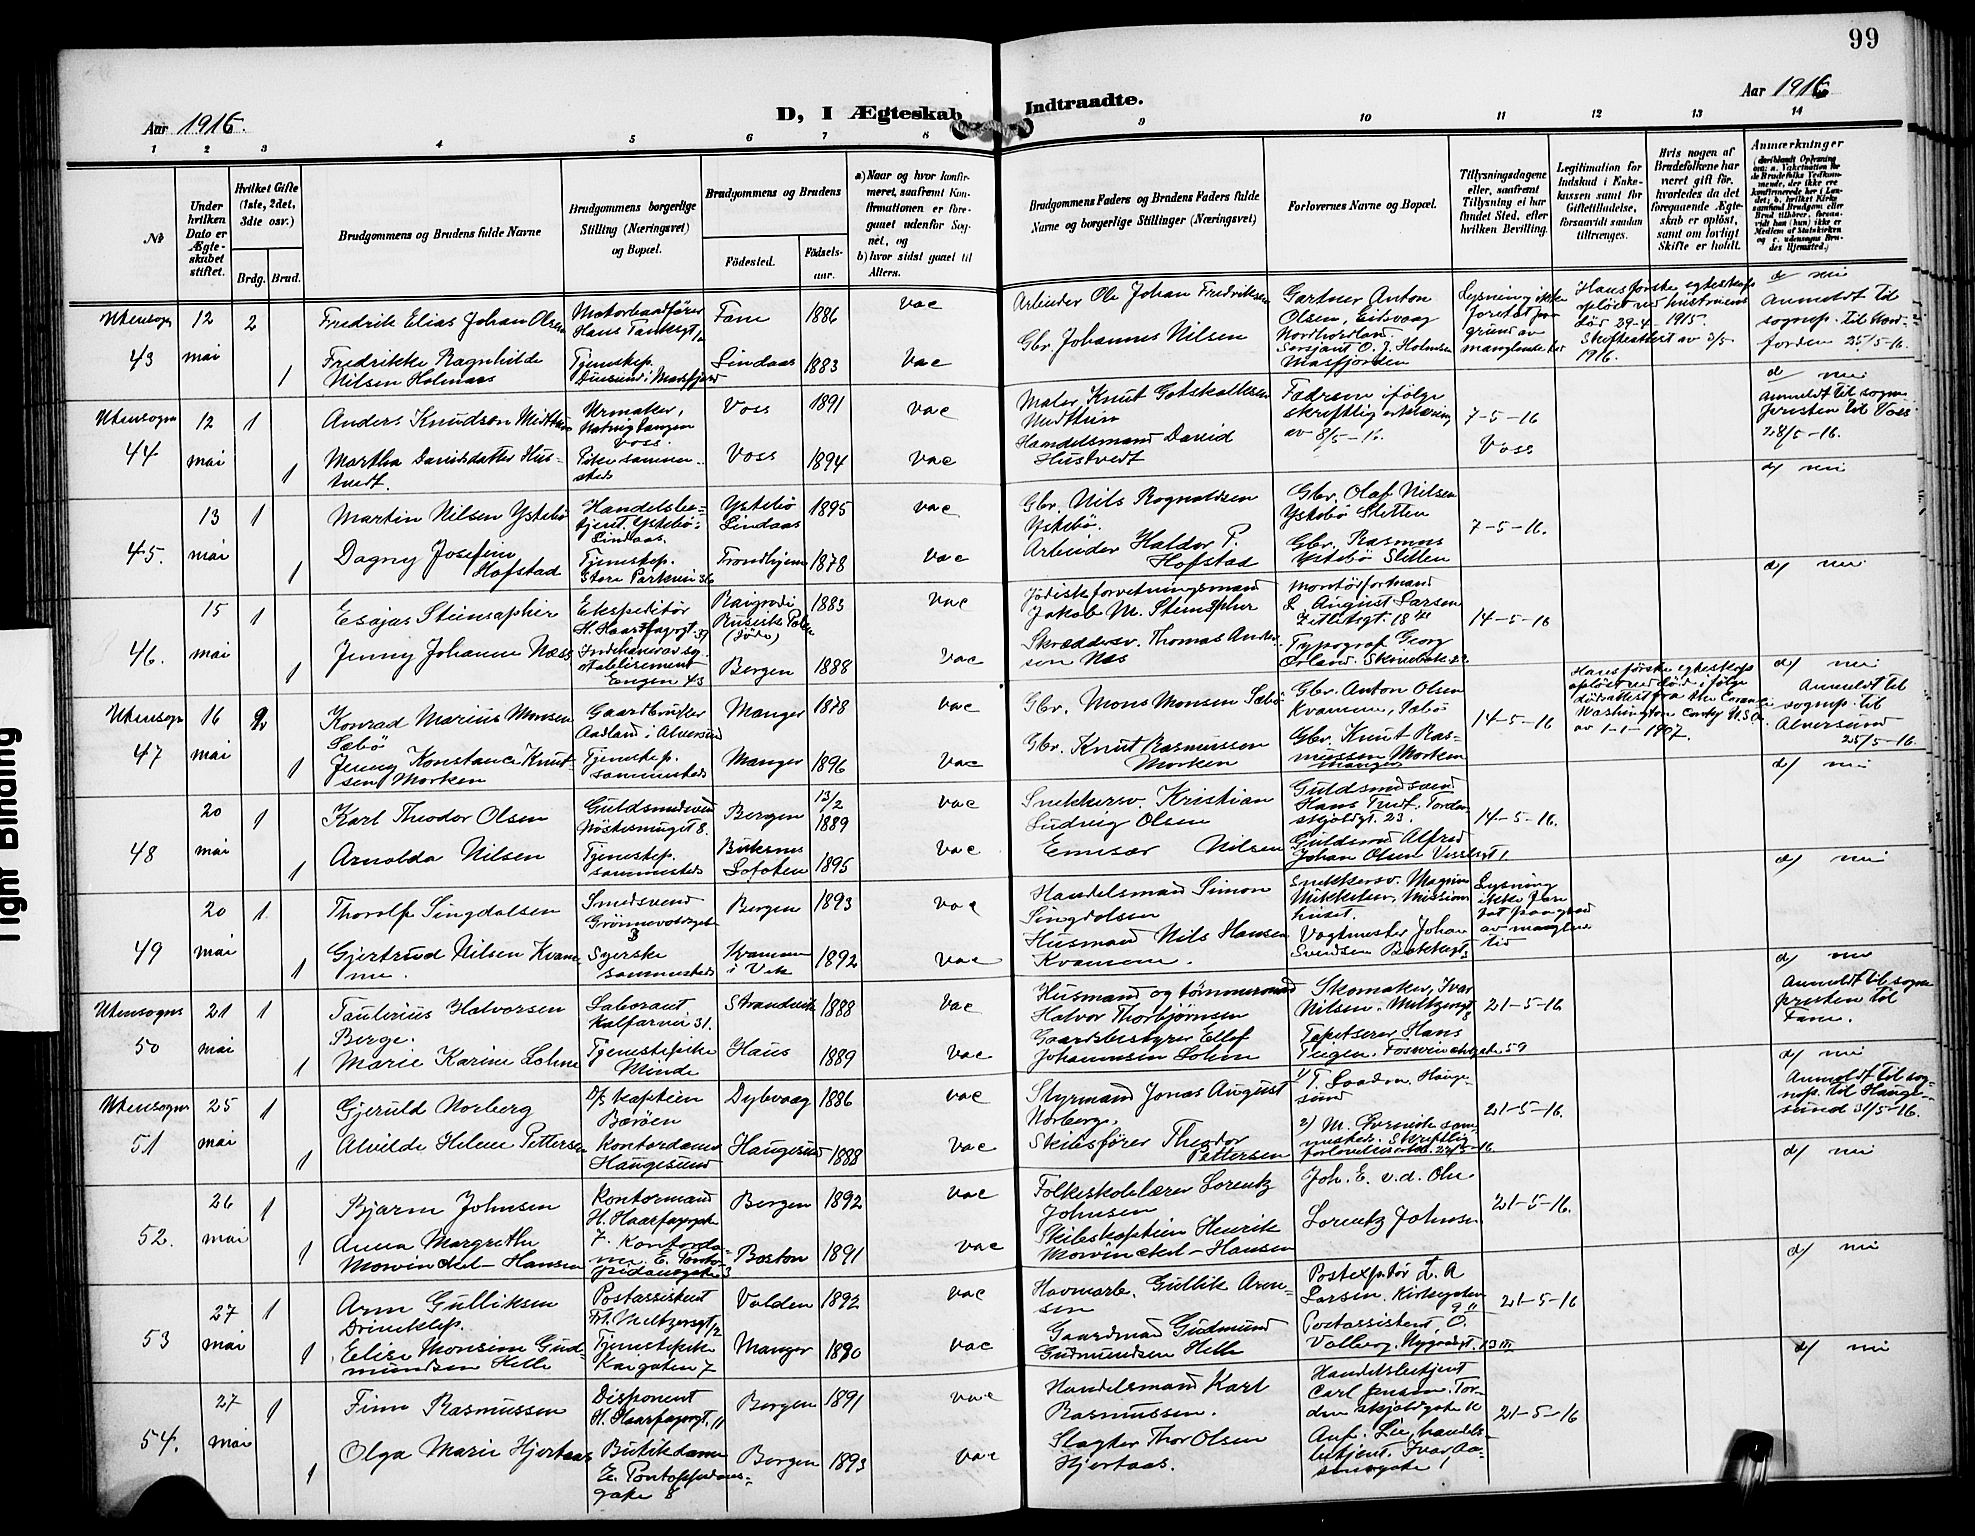 99
Aar 1916.
D, I Ægteskab Indtraadte.
Aar 1916
1 2 3 4 5 6 7 8 9 10 11 12 13 14
№
Under hvilken Dato er Ægteskabet stiftet.
Hvilket Gifte (1ste, 2det, 3die osv.)
Brdg. Brud.
Brudgommens og Brudens fulde Navne
Brudgommens borgerlige Stilling (Næringsvei) og Bopæl.
Brudgommens og Brudens
Fødested. Fødselsaar.
a) Naar og hvor konfirmeret, saafremt Konfirmationen er foregaaet udenfor Sognet, og
b) hvor sidst gaaet til Alters.
Brudgommens Faders og Brudens Faders fulde Navne og borgerlige Stillinger (Næringsvei)
Forlovernes Navne og Bopæl.
Tillysningsdagene eller, saafremt Tillysning ei har fundet Sted, efter hvilken Bevilling.
Legitimation for Indskud i Enkekassen samt for Giftetilladelse, forsaavidt saadan tiltrænges.
Hvis nogen af Brudefolkene har været gift før, hvorledes da det foregaaende Ægteskab er opløst, samt om lovligt Skifte er holdt.
Anmærkninger
Utensogns 43
12 mai
2
1
Fredrik Elias Johan Olsen
Motorbaadfører Hans Tanksgt.
Fane 1886 vac
Arbeider Ole Johan Fredriksen
Gartner Anton Olsen, Eidsvaag Nordhordland.
Lysning ikke foretat paa grund av manglende tid
Hans første egteskap opløst ved hustruens død 29-4-1915. Skifteattest av 3/5 1916.
d/ nei
Anmeldt til sognep. til Mosfjorden 25/5-16.
Fredrikke Ragnhilde Nilsen Holmaas
Tjenestep.
Lindaas 1883 vac
Gbr. Johannes Nilsen
Sersjant O. J. Holmaas Masfjorden
Utensogns 44
12 mai
1
1
Anders Knudsen Midttun
Urmaker, Vossevangen Voss.
Voss 1891 vac
Maler Knut Gotskalksen Midttun
Fædrene ifølge skriftlig erklæring av 8/5-16.
7-5-16 Voss
d/ nei
Anmeldt til sognepresten til Voss 28/5-16.
Martha Davidsdatter Hustvedt.
Pike sammesteds
Voss 1894 vac
Handelsmand David Hustvedt
45.
13 mai
1
1
Martin Nilsen Ystebø
Handelsbetjent, Ystebø i Lindaas.
Ystebø Lindaas 1895 vac
Gbr. Nils Rognaldsen Ystebø.
Gbr. Olaf Nilsen Ystebø Sletten
7-5-16.
d/ nei
Dagny Josefine Hofstad
Tjenestep. Store Parkvei 36
Trondhjem 1878 vac
Arbeider Haldor P. Hofstad
Gbr. Rasmus Ystebø Sletten
46.
15 mai
1
1
Esajas Steinsaphir
Ekspeditør H. Haarfagregt. 39
1883 vac
Jødisk forretningsmand Jakob M. Steinsaphir
Montørformand L. August Larsen
14-5-16
d/ nei
Jenny Johanne Næss
Indehaver av sy-etablisement Engen 43
Bergen 1888 vac
Skræddersv. Thomas Andersen Næs
Typograf Georg Ørland.
Utensogns 47
16 mai
2
1
Konrad Marius Monsen Sæbø
Gaardbruker Aadland i Alversund
Manger 1878 vac
Gbr. Mons Monsen Sæbø
Gbr. Anton Olsen Kvamme, Sæbø
14-5-16
Hans første egteskap opløst ved død ifølge dødsattest fra Washington County U.S.A. av 1-1-1907.
d/ nei
Anmeldt til sognep. til Alversund 25/5-16.
Jenny Konstance Knutsen Morken
Tjenestep. sammesteds
Manger 1896 vac
Gbr. Knut Rasmussen Morken
Gbr. Knut Rasmussen Morken Manger
48
20 mai
1
1
Karl Theodor Olsen
Guldsmedsvend Nøstesmuget 8.
Bergen 13/2 1889 vac
Snekkersv. Kristian Ludvig Olsen
Guldsmedsvend Hans Treet. Tordenskjoldgt. 23.
14-5-16.
d/ nei
Arnolda Nilsen
Tjenestep. sammesteds
Buksnes Lofoten 1895 vac
Emissær Nilsen
Guldsmed Alfred Johan Olsen
49
20 mai
1
1
Thorolf Singdalsen
Smedsvend Grønnevoldsgt 3
Bergen 1893 vac
Handelsmand Simon Singdalsen
Snekkersv. Magnus Mikkelsen, Missionshuset.
Lysning ikke foretat paa grund av manglende tid
d/ nei
Gjertrud Nilsen Kvamme.
Syerske sammesteds
Kvammen i Vik 1892 vac
Husmand Nils Hansen Kvamme.
Vagtmester Johan Svendsen
Utensogns 50
21 mai
1
1
Taulerius Halvorsen Berge.
Laborant Kalfarvei 31.
Strandvik 1888 vac
Husmand og tømmermand Halvor Thorbjørnsen
Skomaker, Ivar Nilsen. Meltzersgt 8
21-5-16
d/ nei
Anmeldt til sognepresten til Fane.
Marie Karine Lohne
Tjenestepike Minde
Haus 1889 vac
Gaardsbestyrer Ellef Johannesen Lohne
Tapetserer Hans Teigen, Fosswinckelsgate 59
Utensogns 51
25 mai
1
1
Gjeruld Norberg
D/S kaptein Barøen
Dybvaag 1886 vac
Styrmand Jonas August Norberg.
1) T. Loadsn. Haugesund
21-5-16.
d/ nei
Anmeldt til sognep. til Haugesund 31/5-16.
Alvilde Helene Pettersen
Kontordame Haugesund
Haugesund 1888 vac
Skibsfører Theodor Pettersen
52.
26 mai
1
1
Bjarne Johnsen
Kontormand H. Haarfagregate 7.
Bergen 1892 vac
Folkeskolelærer Lorentz Johnsen
Joh. E. v.d. Ohe
21-5-16.
d/ nei
Anna Margrethe Mowinckel-Hansen
Kontordame E. Pontoppidansgate 3
Boston 1891 vac
Skibskaptein Henrik Mowinckel-Hansen
Lorentz Johnsen
53
27 mai
1
1
Arne Gulliksen
Postassistent Frk. Meltzersgt 12
Volden 1892 vac
Havnearb. Gullik Arnesen
Postexp.tør L. A. Larsen. Kirkegaten 9 II
21-5-16
d/ nei
Elise Monsine Gudmundsen Helle
Tjenestepike Kaigaten 7
Manger 1890 vac
Gaardmand Gudmund Gudmundsen Helle
Postassistent O. Valberg, Nygaardsgt. 13 III
54.
27 mai
1
1
Finn Rasmussen
Disponent H. Haarfagregt. 11
Bergen 1891 vac
Handelsmand Karl Rasmussen.
Handelsbetjent Carl Jensen. Tordenskjoldsgate 10
21-5-16
d/ nei
Olga Marie Hjertaas
Butikdame E. Pontoppidansgate 8
Bergen 1893 vac
Slagter Thor Olsen Hjertaas.
Anf. Lie, handelsbetjent. Ivar Aasensgate 1
Tight Binding